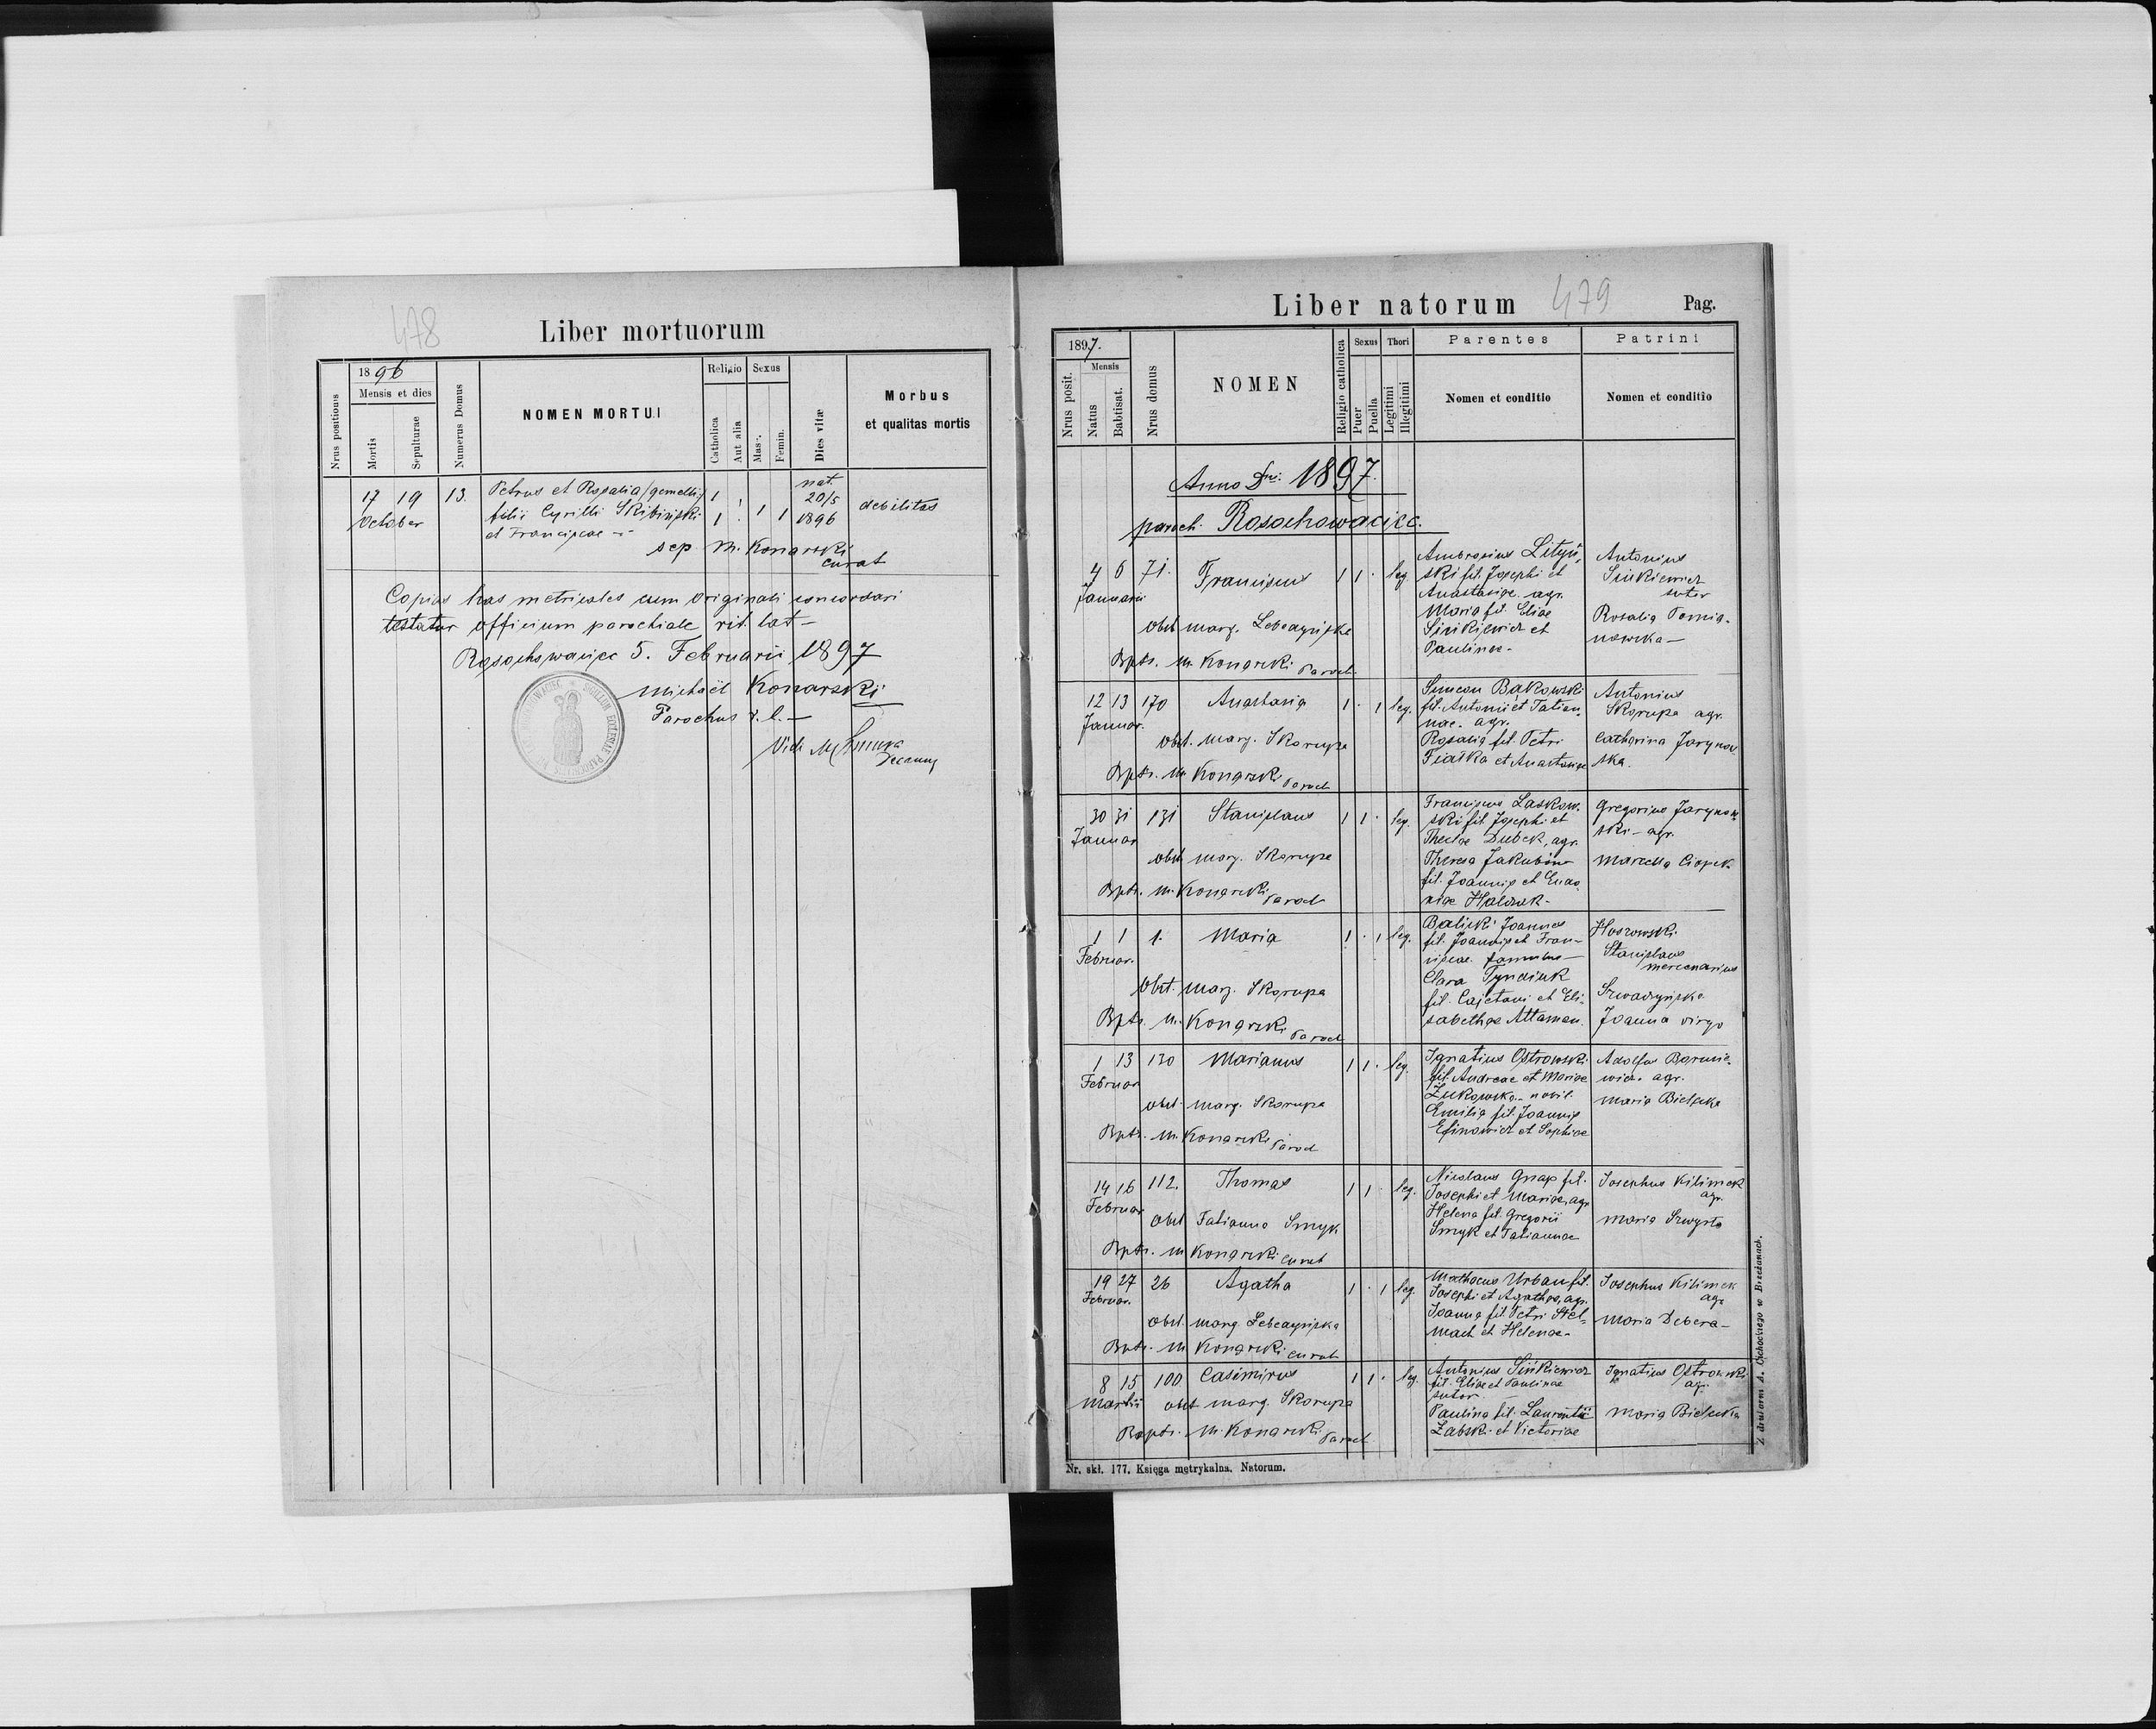 478
Liber mortuorum
1896
Nrus positionis
Mensis et dies
Mortis
Sepulturae
Numerus Domus
NOMEN MORTUI
Religio
Catholica
Aut alia
Sexus
Masc.
Femin.
Dies vitæ
Morbus
et qualitas mortis
17 19 13. Petrus et Rosalia (gemelli) 1 1 nat. 20/5 1896 debilitas
October filii Cyrilli Skibiński 1 1 1
et Franciscae
sep M. Konarski
curat
Copias has metricales cum originali concordari
testatur officium parochiale rit. lat.
Rosochowaciec 5. Februarii 1897
Michaël Konarski
Parochus r. l.
Vidi
Decanus
Liber natorum
479
Pag.
1897.
Nrus posit.
Mensis
Natus
Babtisat.
Nrus domus
NOMEN
Religio catholica
Sexus
Puer
Puella
Thori
Legitimi
Illegitimi
Parentes
Nomen et conditio
Patrini
Nomen et conditio
Anno Dni. 1897.
paroch. Rosochowaciec.
4 6 71. Franciscus 1 1 . leg.
Januarii
obst. marg.
Bptr. M. Konarski Paroch.
Ambrosius Lityń-
ski fil. Josephi et
Anastasiae agr.
Maria fil. Eliae
Sińkiewicz et
Paulinae
Antonius
Sińkiewicz
sutor
Rosalia
12 13 170 Anastasia 1 . 1 leg.
Januar.
obst. marg. Skorupa
Bptr. M. Konarski Paroch
Simeon Bąkowski
fil. Antonii et Tatian-
nae. agr.
Rosalia fil. Petri
et Anastasiae
Antonius
Skorupa agr.
Catharina Jarynow
ska.
30 31 131 Stanislaus 1 1 . leg.
Januar
obst. marg. Skorupa
Bptr. M. Konarski Paroch
Franciscus Laskow-
ski fil. Josephi et
Theclae Dubek, agr.
Theresa
fil. Joannis et Eudo-
xiae
Gregorius Jarynow
ski - agr.
Marcella
1 1 1. Maria 1 . 1 leg.
Februar.
Obst. marg. Skorupa
Bptr. M. Konarski Paroch
Balicki Joannes
fil. Joannis et Fran-
ciscae. famulus
Clara Tyndiuk
fil. Cajetani et Eli-
sabethae Attaman.
Stanislaus
mercenarius
Joanna virgo
1 13 130 Marianus 1 1 . leg.
Februar
obst. marg. Skorupa
Bptr. M. Konarski Paroch
Ignatius Ostrowski
fil. Andreae et Mariae
Żukowska - nobil.
Emilia fil. Joannis
Efinowicz et Sophiae
Adolfus
wicz. agr.
Maria Bielecka
14 16 112. Thomas 1 1 . leg.
Februar
obst Tatianna Smyk
Bptr. M Konarski curat
Nicolaus Gnap fil.
Josephi et Mariae, agr
Helena fil. Gregorii
Smyk et Tatiannae
Josephus Kilimek
agr.
Maria
19 27 26 Agatha 1 . 1 leg.
Februar.
obst. marg.
Bptr. M Konarski curat
Mathaeus Urban fil.
Josephi et Agathae, agr.
Joanna fil. Petri Stel-
mach et Helenae
Josephus Kilimek
agr
Maria Debera
8 15 100 Casimirus 1 1 . leg.
Martii
obst marg. Skorupa
Baptr. M. Konarski Paroch
Antonius Sińkiewicz
fil. Eliae et Paulinae
sutor.
Paulina fil. Laurentii
Żabski et Victoriae
Ignatius Ostrowski
agr.
Maria Bielecka
Nr. skł. 177. Księga metrykalna. Natorum.
Z drukarni A. Cichockiego w Brzeżanach.